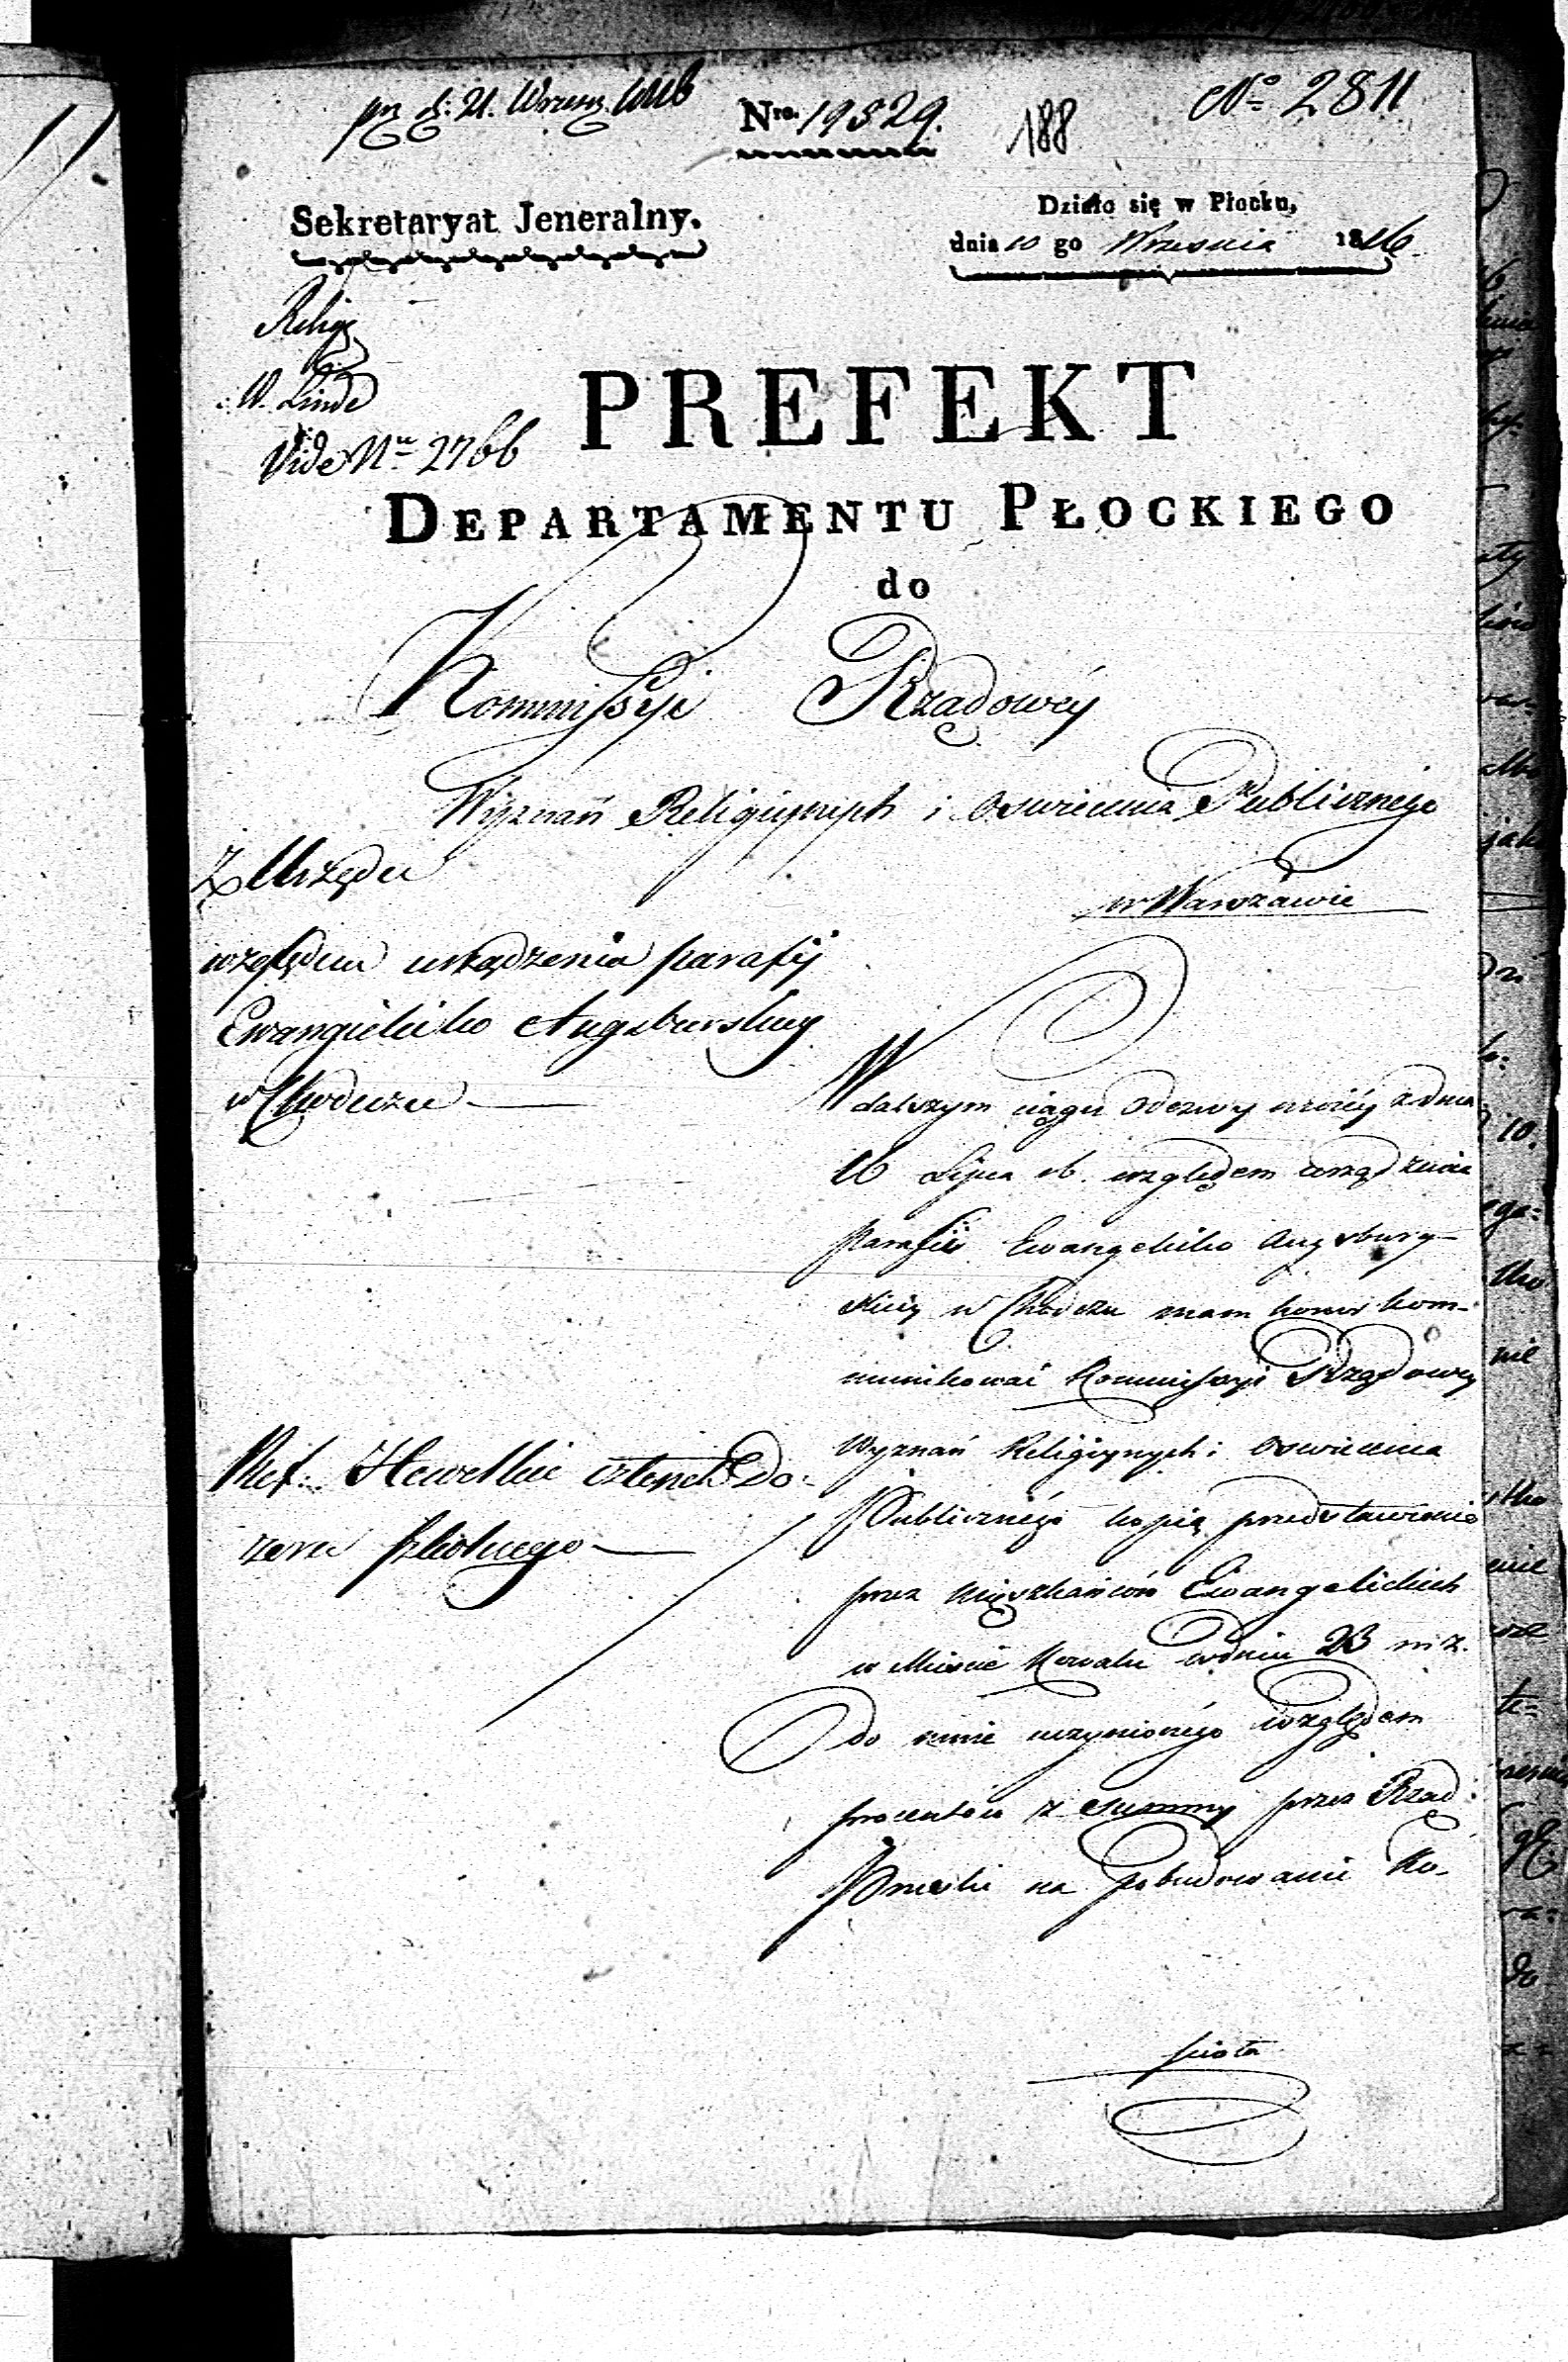 pr. d. 21. Wrzesn. 1816
Nro. 19829.
188
No 2811
Sekretaryat Jeneralny.
Działo się w Płocku,
dnia 10 go Wrzesnia 1816.
Relig.
W. Linde
Vide Nro 2766
PREFEKT
DEPARTAMENTU PŁOCKIEGO
do
Kommissyi Rządowéy
Wyznań Religiynych i Oswiecenia Publicznego
w Warszawie
Z Urzędu
względem urządzenia parafij
Ewangielicko Augsburskiey
w Chodeczu
W dalszym ciągu Odezwy moiéy z dnia
16 Lipca rb. względem urządzenia
Parafii Ewangelicko Augsburg-
skiey w Chodczu mam honor kom-
munikować Kommissyi Rządowey
Wyznań Religiynych i Oswiecenia
Publicznégo kopią przedstawienia
przez Mieszkańców Ewangelickich
w Miescie Kowalu w dniu 23 m. z.
do mnie uczynionégo względem
procentów z Summy przez Rząd
Pruski na pobudowanie Ko-
Ref. Hewelke członek Do-
zoru szkolnego
scioła